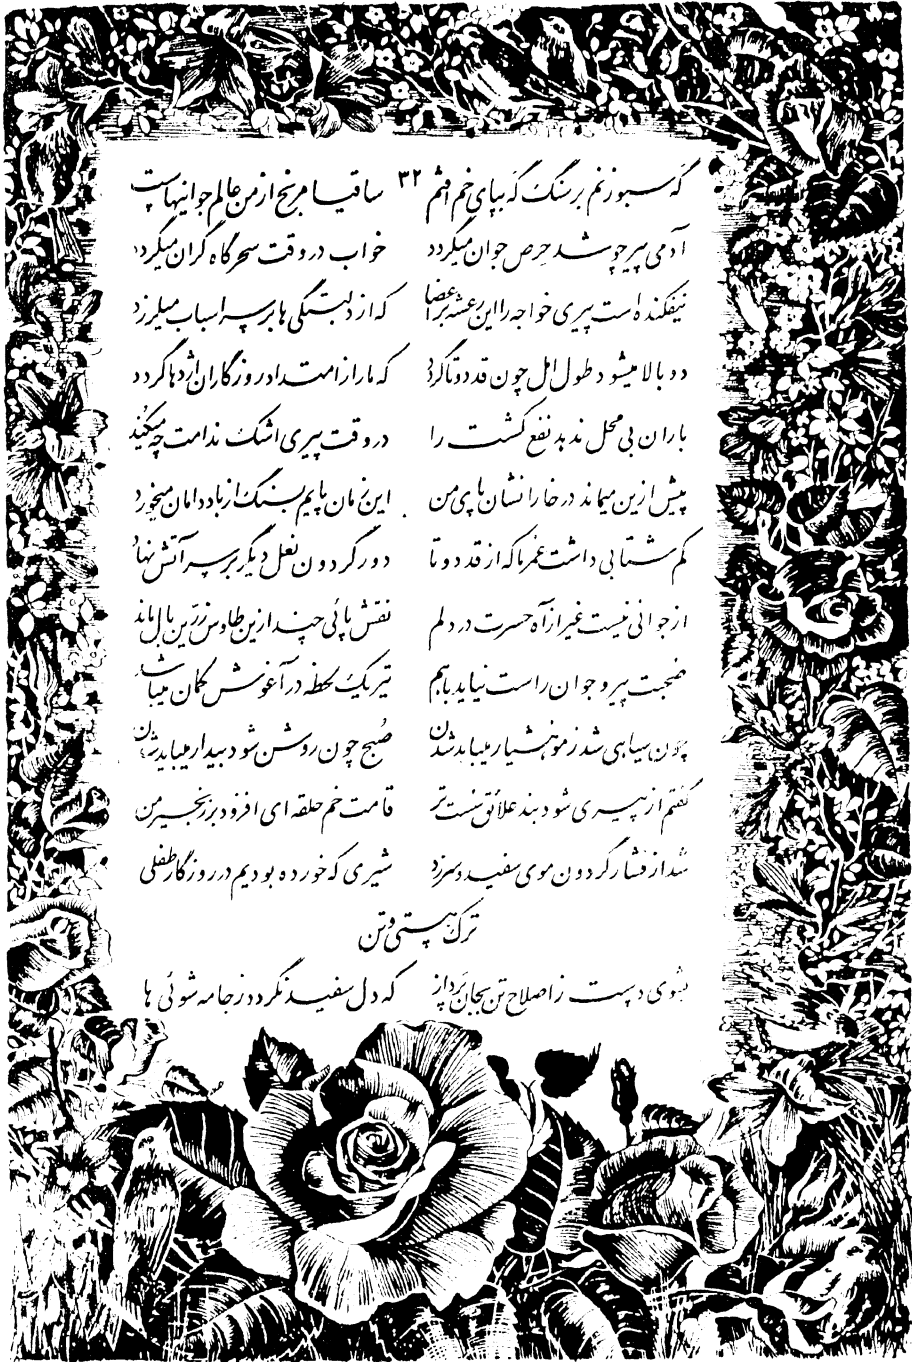 گه سبو زنم بر سنگ گه بپای خم افتم ۳۲ ساقیا مرنج از من عالم جوانیهاست
آدمی پیر چو شد حرص جوان میگردد خواب در وقت سحرگاه گران میگردد
نیفکنده است پیری خواجه را این رعشه بر اعضا که از دلبستگی ها بر سر اسباب میلرزد
دو بالا میشود طول امل چون قد دو تا گردد که مار از امتداد روزگاران اژدها گردد
باران بی محل ندهد نفع کشت را در وقت پیری اشک ندامت چه میکند
پیش ازین میماند در خارا نشان پای من این زمان پایم بسنگ از باد دامان میخورد
کم شتابی داشت عمر ما که از قد دو تا دور گردون نعل دیگر بر سر آتش نهاد
از جوانی نیست غیر از آه حسرت در دلم نقش پائی چند ازین طاوس زرین بال ماند
صحبت پیر و جوان راست نیاید باهم تیر یک لحظه در آغوش کمان میباشد
چون سیاهی شد ز مو هشیار میباید شدن صبح چون روشن شود بیدار میباید شدن
گفتم از پیری شود بند علائق سست تر قامت خم حلقه ای افزود بر زنجیر من
شد از فشار گردون موی سفید و سرزد شیری که خورده بودیم در روزگار طفلی
ترک هستی و تن
بشوی دست ز اصلاح تن بجان پرداز که دل سفید نگردد ز جامه شوئی ها